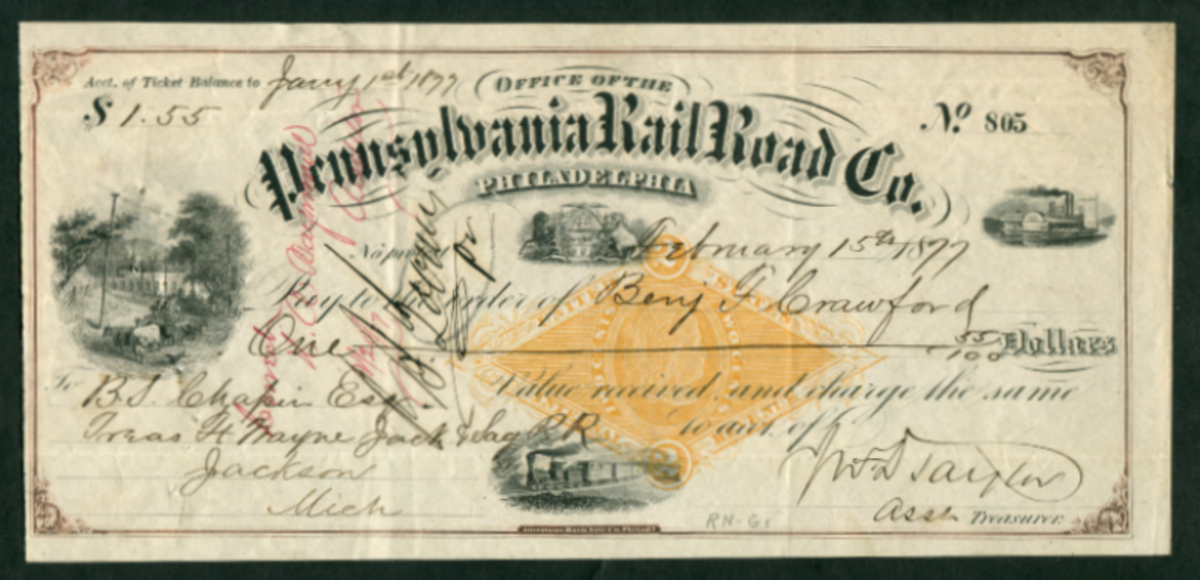 Acct. of Ticket Balance to Jany 1st 1877
$ 1.55
OFFICE OF THE
Pennsylvania Rail Road Co.
PHILADELPHIA
No. 805
February 15th 1877
Pay to the order of Benj F Crawford
One 55/100 Dollars
Value received, and charge the same
To B.S. Chapin Esq. to acct. of
Treas Ft Wayne Jack & Sag RR
Jackson
Mich
Asst Treasurer
RN-G1